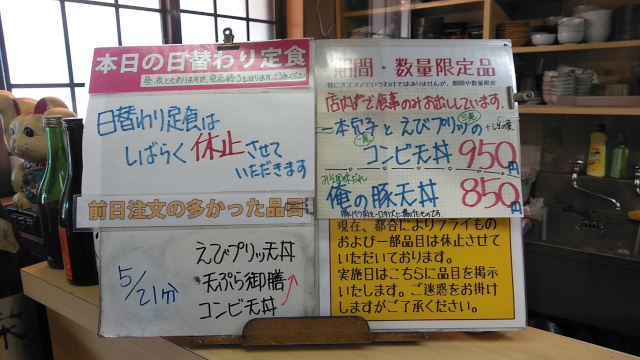 本日の日替わり定食
日替わり定食は
しばらく休止させて
いただきます
前日注文の多かった品
5/21分
えびプリッ天丼
天ぷら御膳
コンビ天丼
期間・数量限定品
特にオススメというわけではありませんが、期間や数量限定
店内で食事のみお出ししています。
一本穴子とえびプリッの
コンビ天丼 950円
俺の豚天丼 850円
現在、都合によりフライもの
および一部品目は休止させて
いただいております。
実施日はこちらに品目を掲示
いたします。ご迷惑をお掛け
しますがご了承ください。